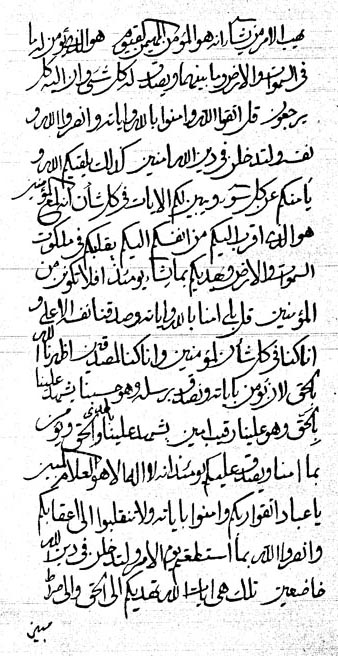 يهب الامر من يشآء انه هو المؤمن المهيمن القيوم هو الذى يؤمن له ما
فى السموات والارض وما بينهما ويصدق له كل شئ وان اليه كل
يرجعون قل اتقوا الله وامنوا بالله واياته وانصروا الله و
ولتدخلن فى دين الله امنين كذلك يلقيكم الله و
يأمنكم عن كل سوء ويبين لكم الايات فى كل شأن
هو الذى اقرب اليكم من انفسكم اليكم يقلبكم فى ملكوت
السموات والارض ويهديكم بما يشآء يومئذ افلا تكونن من
المؤمنين قل بلى امنا بالله واياته وصدقنا الاعلى و
انا كنا فى كل شأن لمؤمنين وانا كنا لمصدقين اظهرنا الله
بالحق لان يؤمن باياته ونصدق برسله وهو حسبنا يشهد علينا
بالحق وهو علينا رقيب امين يشهد علينا بالحق ويؤمن
بما امنا ويصدق عليكم يومئذ انه لا اله الا هو العلام المبين
يا عباد اتقوا ربكم وامنوا باياته ولا تنقلبوا الى اعقابكم
وانصروا الله بما استطعتم يوم الامر ولتدخلن فى دين الله
خاضعين تلك هى ايات الله تهديكم الى الحق والى صراط
مبين